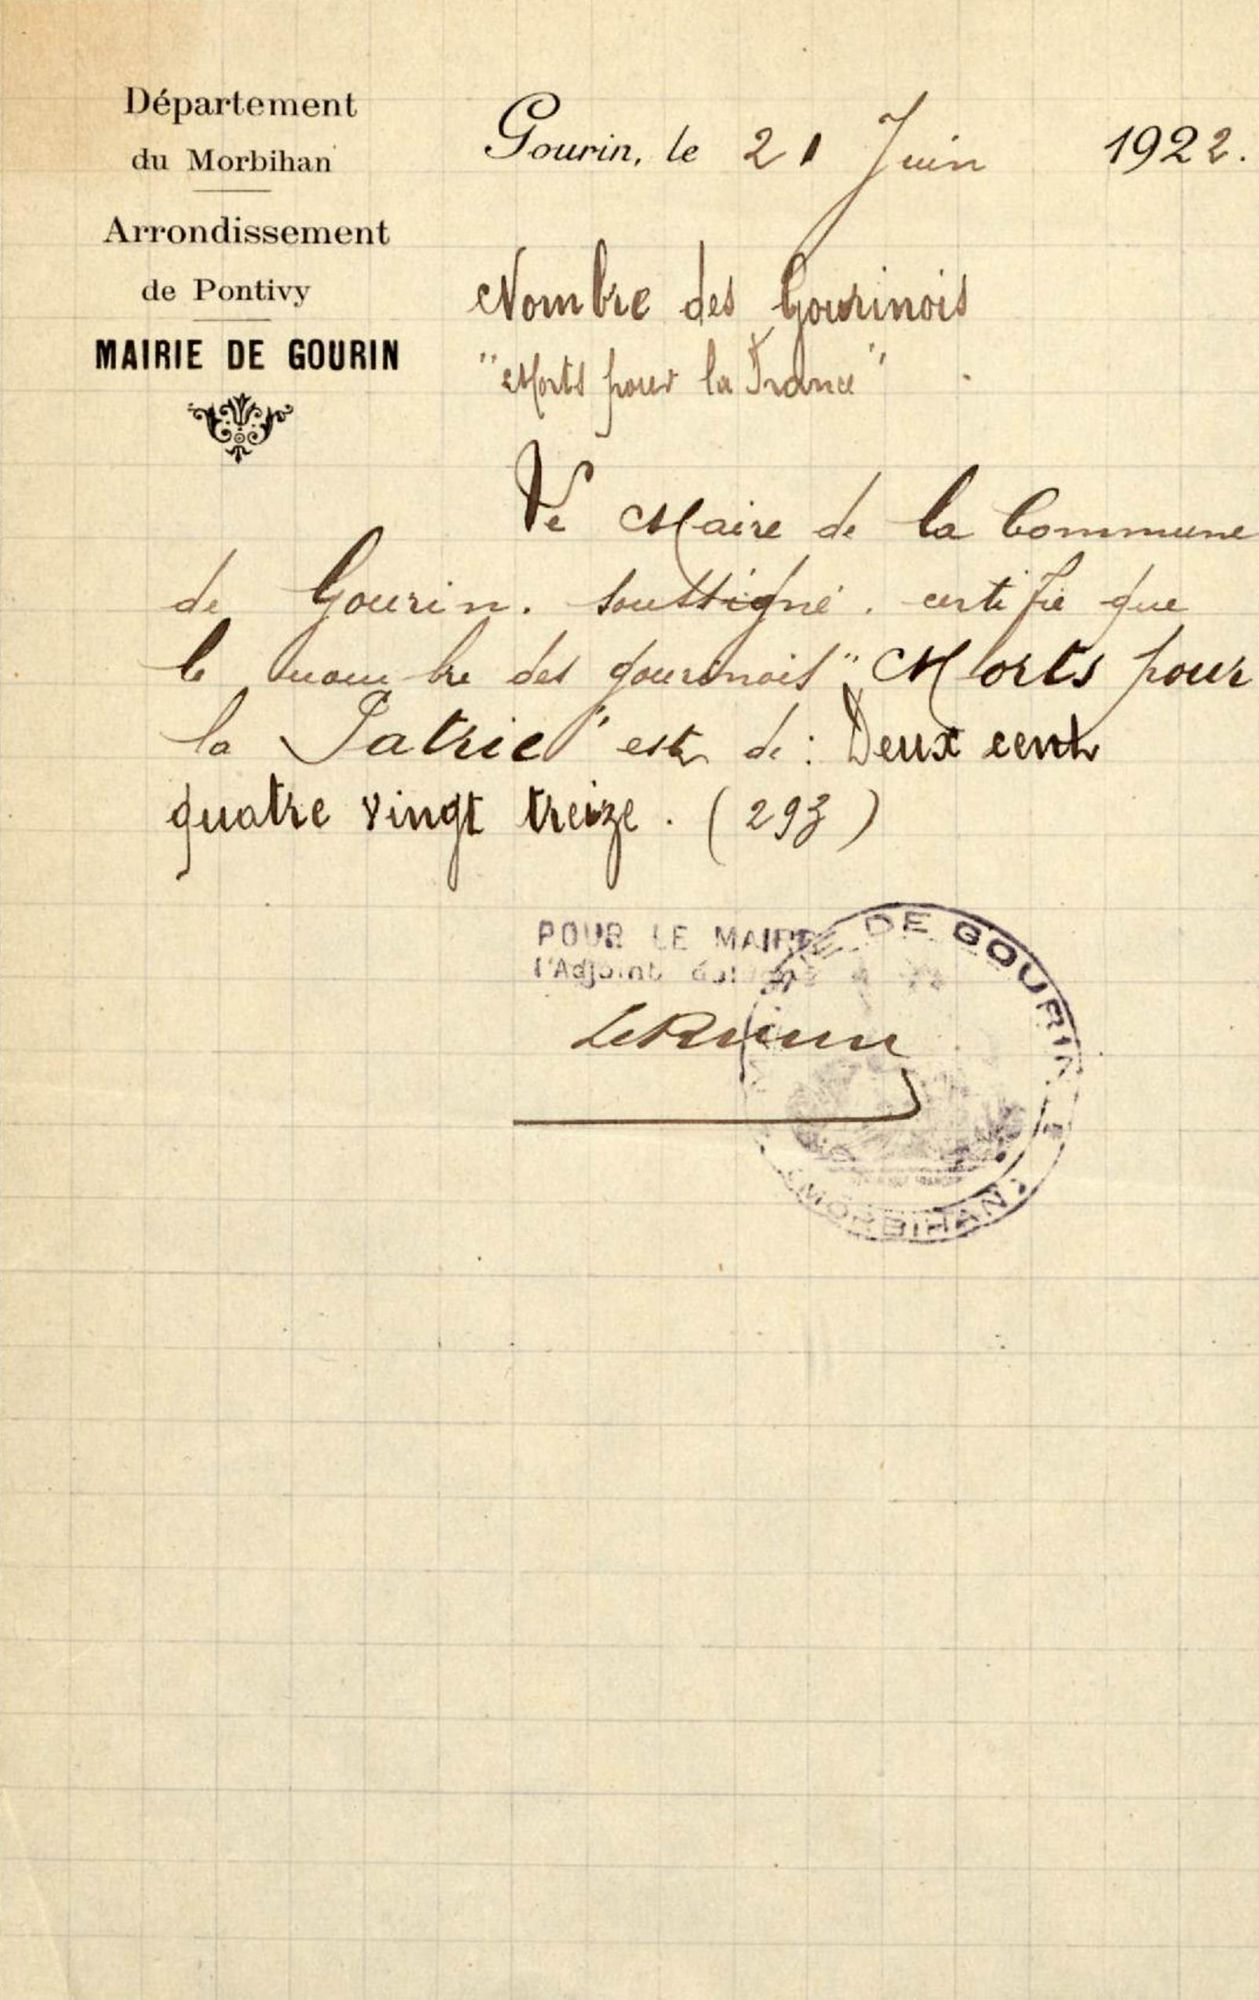 Département
du Morbihan
Arrondissement
de Pontivy
MAIRIE DE GOURIN
Gourin, le 21 Juin 1922.
Nombre des Gourinois
"Morts pour la France"
Le Maire de la Commune
de Gourin. soussigné. certifie que
le nombre des gourinois "Morts pour
la Patrie" est de : Deux cent
quatre vingt treize. (293)
POUR LE MAIRE
l'Adjoint
MAIRIE DE GOURIN
(MORBIHAN)